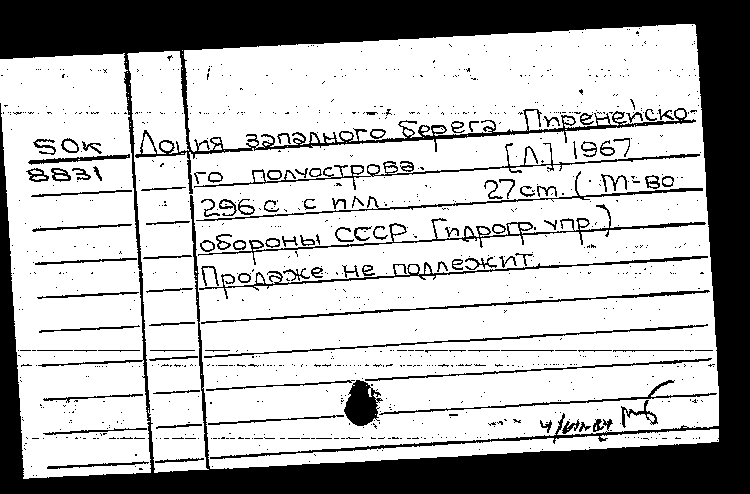 50к Лоция западного берега Пиренейско-
8831 го полуострова. [Л.], 1967
296 с. с илл. 27 cm. (М-во
обороны СССР. Гидрогр. упр.)
Продаже не подлежит.